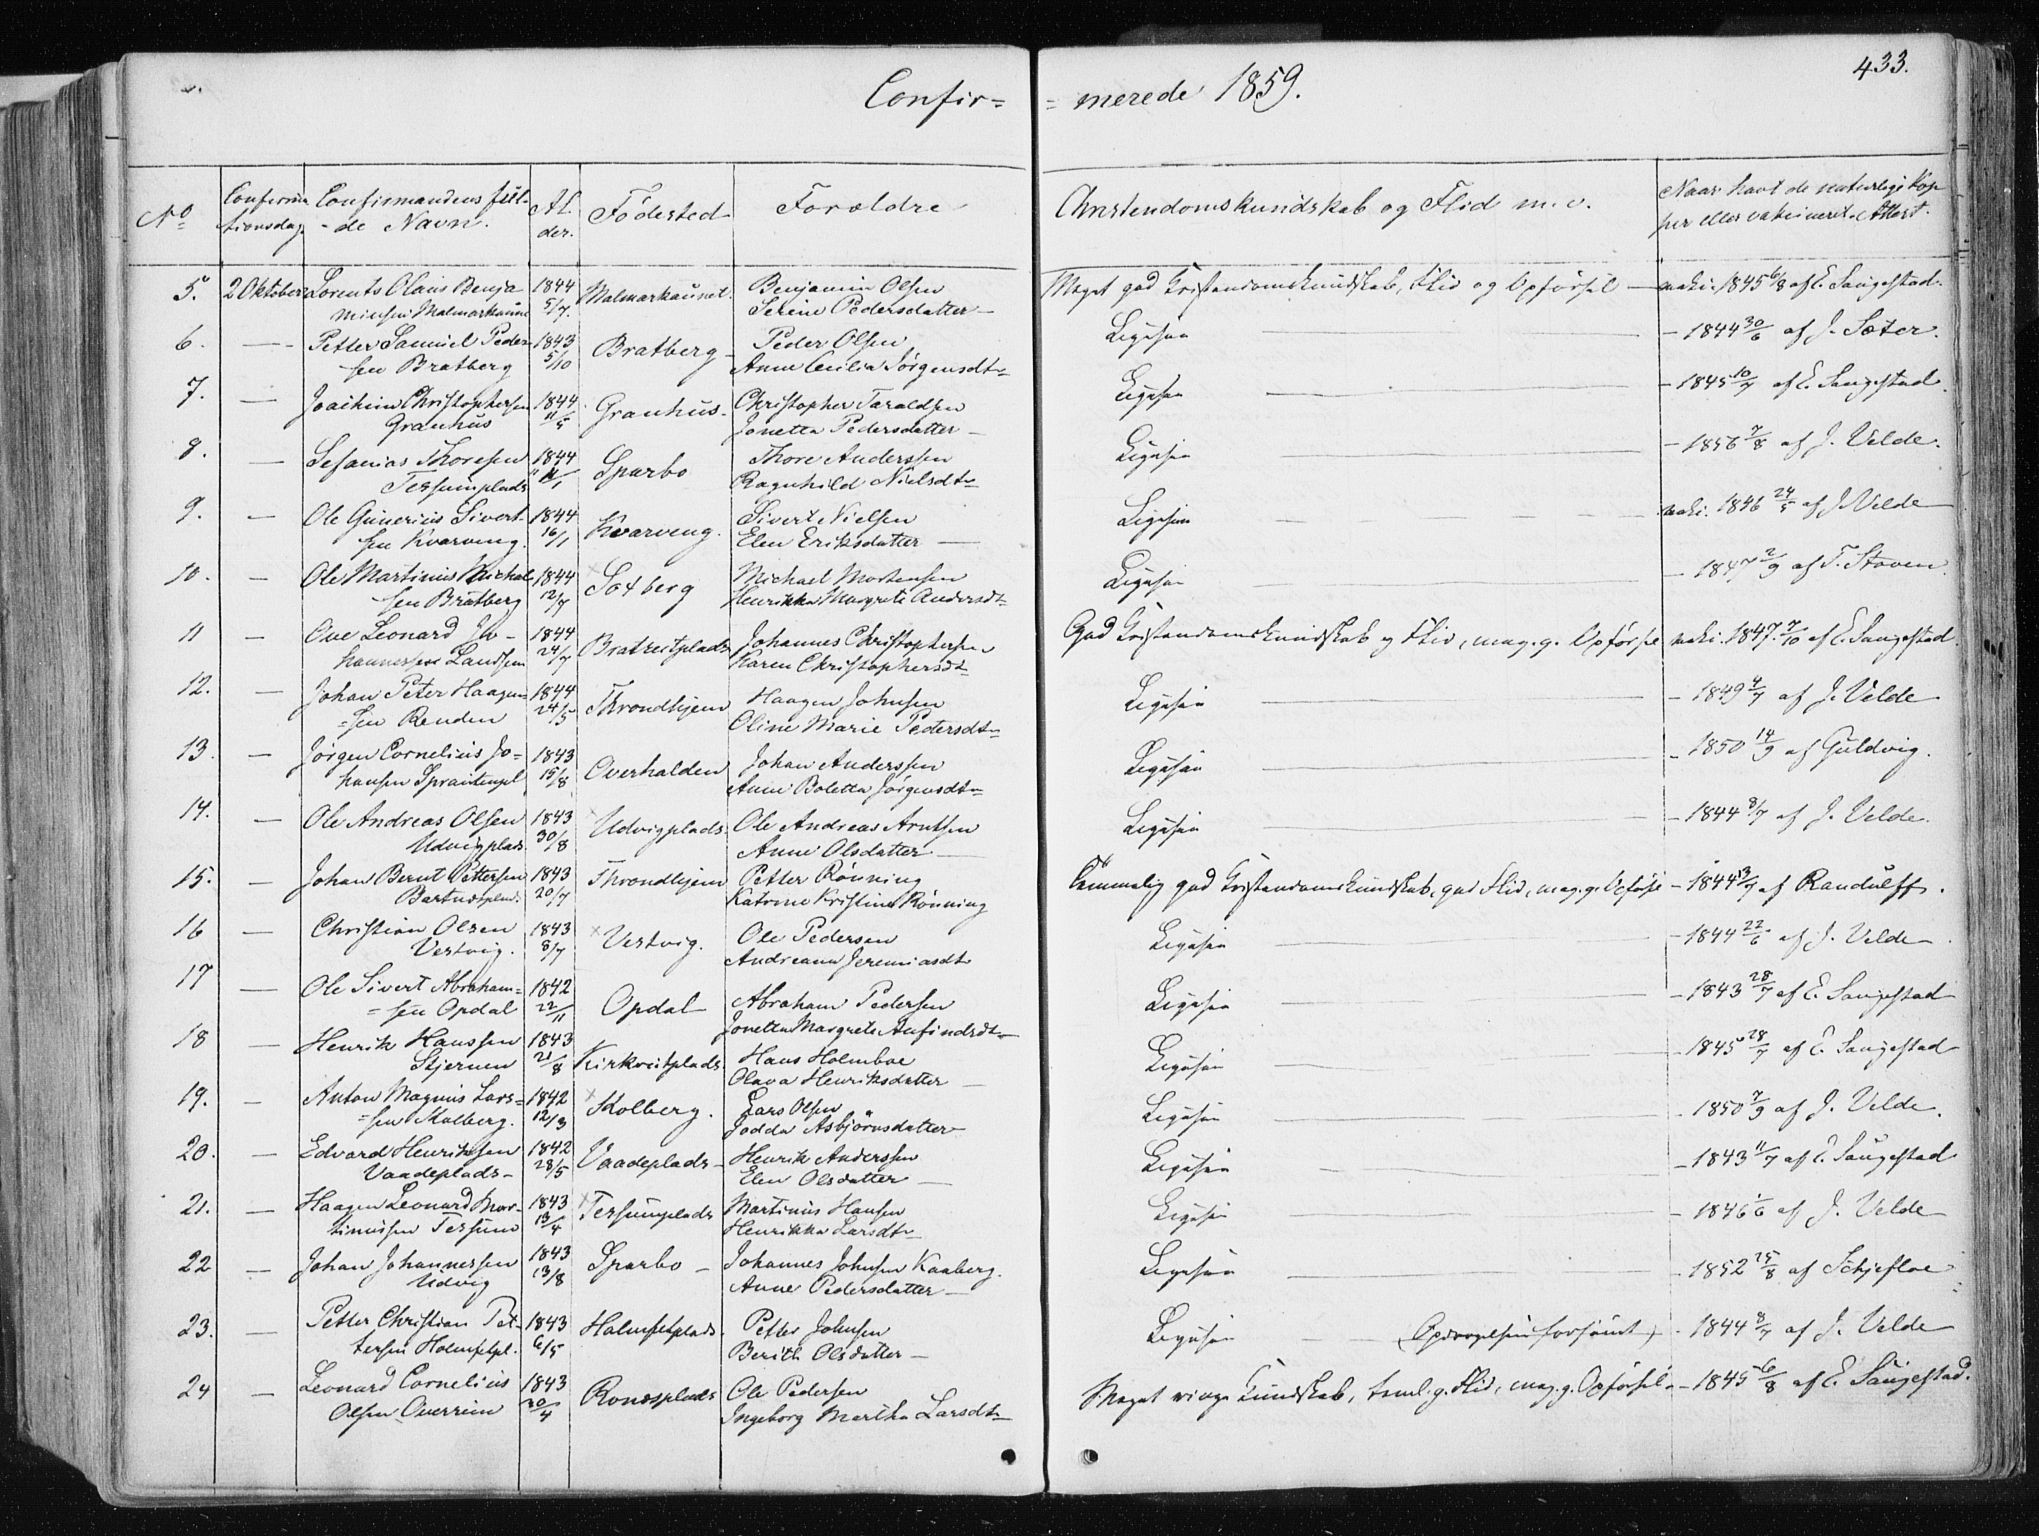 433.
Confir= = merede 1859.
No Confirmationsdag Confirmandens fulde Navn. Alder. Födested Forældre Christendomskundskab og Flid m. v. Naar havt de naturlige Kopper eller vakcineret. Attest.
5. 2 Oktober Lorents Olaus Benja 1844 Malmarkaunet. Benjamin Olsen Meget god Kristendomskundskab, Flid og Opførsel — vaki. 1845 6/8 af E. Saugestad.
minsen Malmarkaune 5/7. Serine Pedersdatter —
6. — Petter Samuel Peder= 1843 Bratberg — Peder Olsen Ligesaa — 1844 30/6 af J. Sæter.
sen Bratberg 5/10 Anne Cecilia Jørgensdtr
7. — Joachim Christophersen 1844 Granhus. Christopher Taraldsen Ligesaa — 1845 10/7 af E. Saugestad.
Granhus 11/5 Jonetta Pedersdatter —
8. — Sefanias Thoresen 1844 Sparbo Thore Anderssen Ligesaa — 1856 7/8 af J. Velde.
Tessumplads Ragnhild Nielsdtr
9. — Ole Gunerius Sivert- 1844 Kvarveng. Sivert Nielsen Ligesaa vaki. 1846 24/5 af J. Velde
sen Kvarveng. 16/1 Elen Eriksdatter —
10. — Ole Martinus Michal 1844 Saxberg Michael Mortensen Ligesaa — 1847 2/9 af T. Stoven.
sen Bratberg 12/7 Henrikka Margrete Andersdtr
11 — Ove Leonard Jo- 1844 Bratreitplads Johannes Christophersen God Kristendomskundskab og Flid, meg. g. Opførsel vaki. 1847. 7/10 af E. Saugestad.
hannessen Landsem 24/7 Karen Christophersdtr
12. — Johan Peter Haagen= 1844 Throndhjem Haagen Johnsen Ligesaa — 1849 4/7 af J. Velde
=sen Renden 24/5 Oline Marie Pedersdtr
13. — Jørgen Cornelius Jo- 1843 Overhalden Johan Anderssen Ligesaa — 1850 14/9 af Guldvig.
hansen 15/8 Anne Boletta Jörgensdtr
14. — Ole Andreas Olsen 1843 Udvigplads Ole Andreas Arntsen Ligesaa — 1844 8/7 af J. Velde.
Udvigplads 30/8 Anne Olsdatter —
15. — Johan Bernt Pettersen 1843 Throndhjem Petter Rönning Temmelig god Kristendomskundskab, god Flid, meg. g. Opførsel — 1844 13/7 af Randulff.
20/7 Katrine Kristine Rönning
16 — Christian Olsen 1843 Vestvig. Ole Pedersen Ligesaa — 1844 22/6 af J. Velde
Vestvig. 8/7 Andreana Jeremiasdtr
17 — Ole Sivert Abraham= 1842 Opdal Abraham Pedersen Ligesaa — 1843 28/7 af E. Saugestad
=sen Opdal 22/11 Jonetta Margrete Anfindsdtr
18 — Henrik Hanssen 1843 Kirkreitplads Hans Holmboe Ligesaa — 1845 28/7 af E. Saugestad
Stjernen 21/8 Olava Henriksdatter —
19. — Anton Magnus Lars= 1842 Skolberg. Lars Olsen Ligesaa — 1850 7/9 af J. Velde.
=sen Skolberg. 12/3 Jodda Asbjörnsdatter
20. — Edvard Henriksen 1842 Vaadeplads — Henrik Anderssen Ligesaa — 1843 11/7 af E. Saugestad
Vaadeplads — 28/5 Elen Olsdatter —
21. — Haagen Leonard Mar- 1843 Tessumplads Martinus Hansen Ligesaa — 1846 1/6 af J. Velde
tinussen Tessum 13/4 Henrikka Larsdtr
22 — Johan Johannessen 1843 Sparbo — Johannes Johnsen Kaaberg. Ligesaa — 1852 25/8 af Schjefloe
Udvig 13/8 Anne Pedersdatter —
23. — Petter Christian Pet- 1843 Holmsetplads. Petter Johnsen Ligesaa — (Opdragelsen forsømt) — 1844 8/7 af J. Velde
tersen Holmsetpl. 6/5 Berith Olsdatter —
24 — Leonard Cornelius 1843 Ronesplads Ole Pedersen Meget ringe Kundskab, teml. g. Flid, meg. g. Opførsel. — 1845 6/8 af E. Saugestad.
Olsen Overrein 20/4 Ingeborg Martha Larsdtr